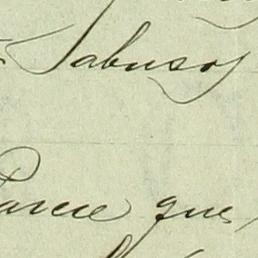 Sabuso
Parece que